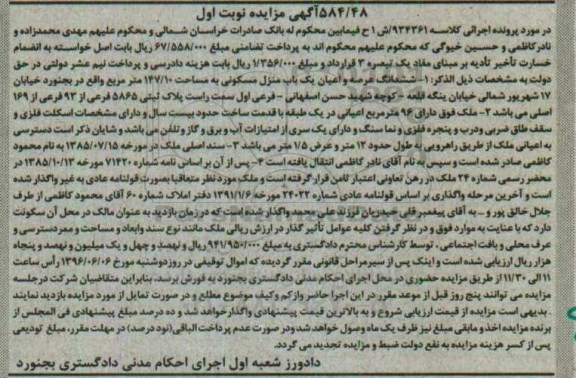 ۵۸۴/۴۸ آگهی مزایده نوبت اول
در مورد پرونده اجرائی کلاسه ۹۳۴۳۶۱/ش ۱ ح فیمابین محکوم له بانک صادرات خراسان شمالی و محکوم علیهم مهدی محمدزاده و
نادر کاظمی و حسین خیوگی که محکوم علیهم محکوم اند به پرداخت تضامنی مبلغ ۶۷/۵۵۸/۰۰۰ ریال بابت اصل خواسته به انضمام
خسارت تأخیر تأدیه بر مبنای مفاد یک تبصره ۳ قرارداد و مبلغ ۱/۳۵۶/۰۰۰ ریال بابت هزینه دادرسی و پرداخت نیم عشر دولتی در حق
دولت به مشخصات ذیل الذکر: ۱- ششدانگ عرصه و اعیان یک باب منزل مسکونی به مساحت ۱۴۷/۱۰ متر مربع واقع در بجنورد خیابان
۱۷ شهریور شمالی خیابان ینگه قلعه - کوچه شهید حسن اصفهانی - فرعی اول سمت راست پلاک ثبتی ۵۸۶۵ فرعی از ۹۳ فرعی از ۱۶۹
اصلی می باشد ۲- ملک فوق دارای ۹۶ مترمربع اعیانی در یک طبقه با قدمت ساخت حدود بیست سال و دارای مشخصات اسکلت فلزی و
سقف طاق ضربی و درب و پنجره فلزی و نما سنگ و دارای یک سری از امتیازات آب و برق و گاز و تلفن می باشد و شایان ذکر است دسترسی
به اعیانی ملک از طریق راهرویی به طول حدود ۱۲ متر و عرض ۱/۵ متر می باشد ۳- سند اصلی ملک در مورخه ۱۳۸۵/۰۷/۱۵ به نام محمود
کاظمی صادر شده است و سپس به نام آقای نادر کاظمی انتقال یافته است ۴- پس از آن بر اساس نامه شماره ۷۱۴۲۰ مورخه ۱۳۸۵/۱۰/۱۲ در
محضر رسمی شماره ۲۴ ملک در رهن تعاونی اعتبار ثامن قرار گرفته است و ملک مورد نظر متعاقبا بصورت قولنامه عادی به غیر واگذار شده
است و آخرین مرحله واگذاری بر اساس قولنامه عادی شماره ۲۴۰۲۲ مورخه ۱۳۹۱/۱/۶ دفتر املاک شماره ۶۰ آقای محمود کاظمی از طرف
جلال خالق پور و ... به آقای پیغمبر قلی حیدریان فرزند علی محمد واگذار شده است که در زمان بازدید به عنوان مالک در محل آن سکونت
دارد که با عنایت به موارد فوق و در نظر گرفتن کلیه عوامل تأثیر گذار در ارزش ریالی ملک مانند نوع سند و ابعاد و مساحت و ممر دسترسی و
عرف محلی و بافت اجتماعی، توسط کارشناس محترم دادگستری به مبلغ ۹۴۱/۹۵۰/۰۰۰ ریال و نهصد و چهل و یک میلیون و نهصد و پنجاه
هزار ریال ارزیابی شده است و اینک پس از سیر مراحل قانونی مقرر گردیده که اموال توقیفی در روز دوشنبه مورخ ۱۳۹۶/۰۶/۰۶ رأس ساعت
۱۱ الی ۱۱/۳۰ از طریق مزایده حضوری در محل اجرای احکام مدنی دادگستری بجنورد به فروش برسد. بنابراین متقاضیان شرکت در جلسه
مزایده می توانند پنج روز قبل از موعد مقرر در این اجرا حاضر و از کم و کیف موضوع مطلع و در صورت تمایل از مورد مزایده بازدید نمایند
. بدیهی است مزایده از قیمت ارزیابی شروع و به بالاترین قیمت پیشنهادی واگذار خواهد شد و ده درصد مبلغ پیشنهادی فی المجلس از
برنده مزایده اخذ و مابقی مبلغ نیز ظرف یک ماه وصول خواهد شد و در صورت عدم پرداخت الباقی (نود درصد) در مهلت مقرر، مبلغ تودیعی
پس از کسر هزینه مزایده به نفع دولت ضبط و مزایده تجدید می گردد.
دادورز شعبه اول اجرای احکام مدنی دادگستری بجنورد